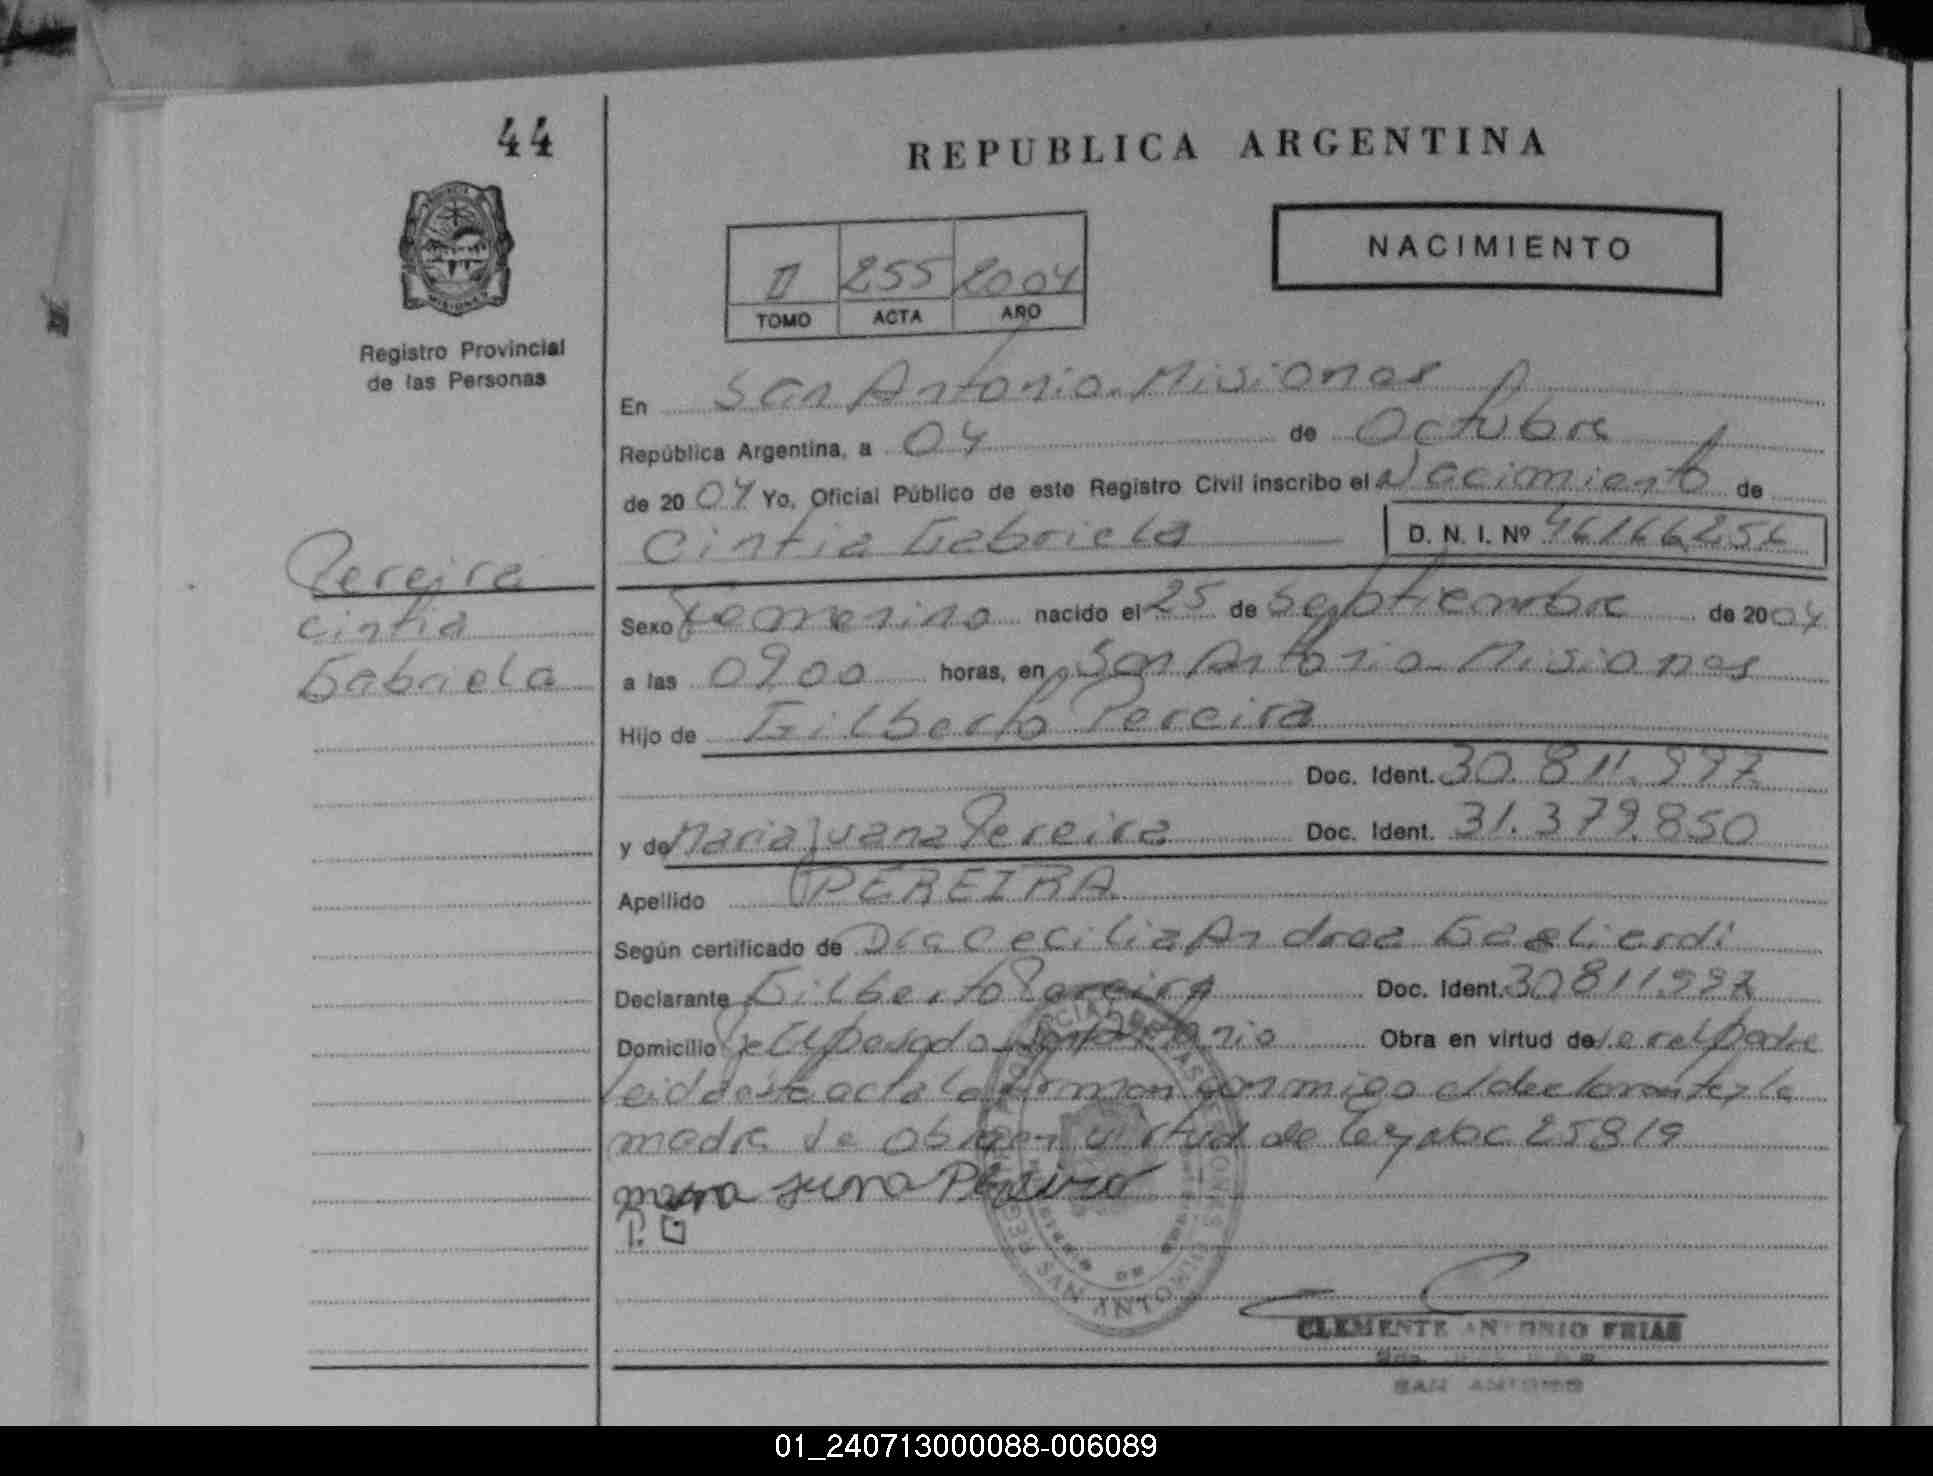 44
REPUBLICA ARGENTINA
NACIMIENTO
II 255 2004
TOMO ACTA AÑO
MISIONES
Registro Provincial
de las Personas
En San Antonio. Misiones
República Argentina, a 04 de Octubre
de 2004 Yo, Oficial Público de este Registro Civil inscribo el Nacimiento de
Cintia Gabriela D. N. I. Nº
Pereira
Cintia
Gabriela
Sexo Femenino nacido el 25 de Septiembre de 2004
a las 0900 horas, en San Antonio Misiones
Hijo de Gilberto Pereira
Doc. Ident. 30.811.997
y de Maria Juana Pereira Doc. Ident. 31.379.850
Apellido PEREIRA
Según certificado de Dra Cecilia Andrea
Declarante Gilberto Pereira Doc. Ident. 30811.997
Domicilio San Antonio Obra en virtud de ser el padre
leida este acta la firman conmigo el declarante y la
madre se obra en virtud de ley 25819
P.
CLEMENTE ANTONIO FRIAS
SAN ANTONIO
01_240713000088-006089